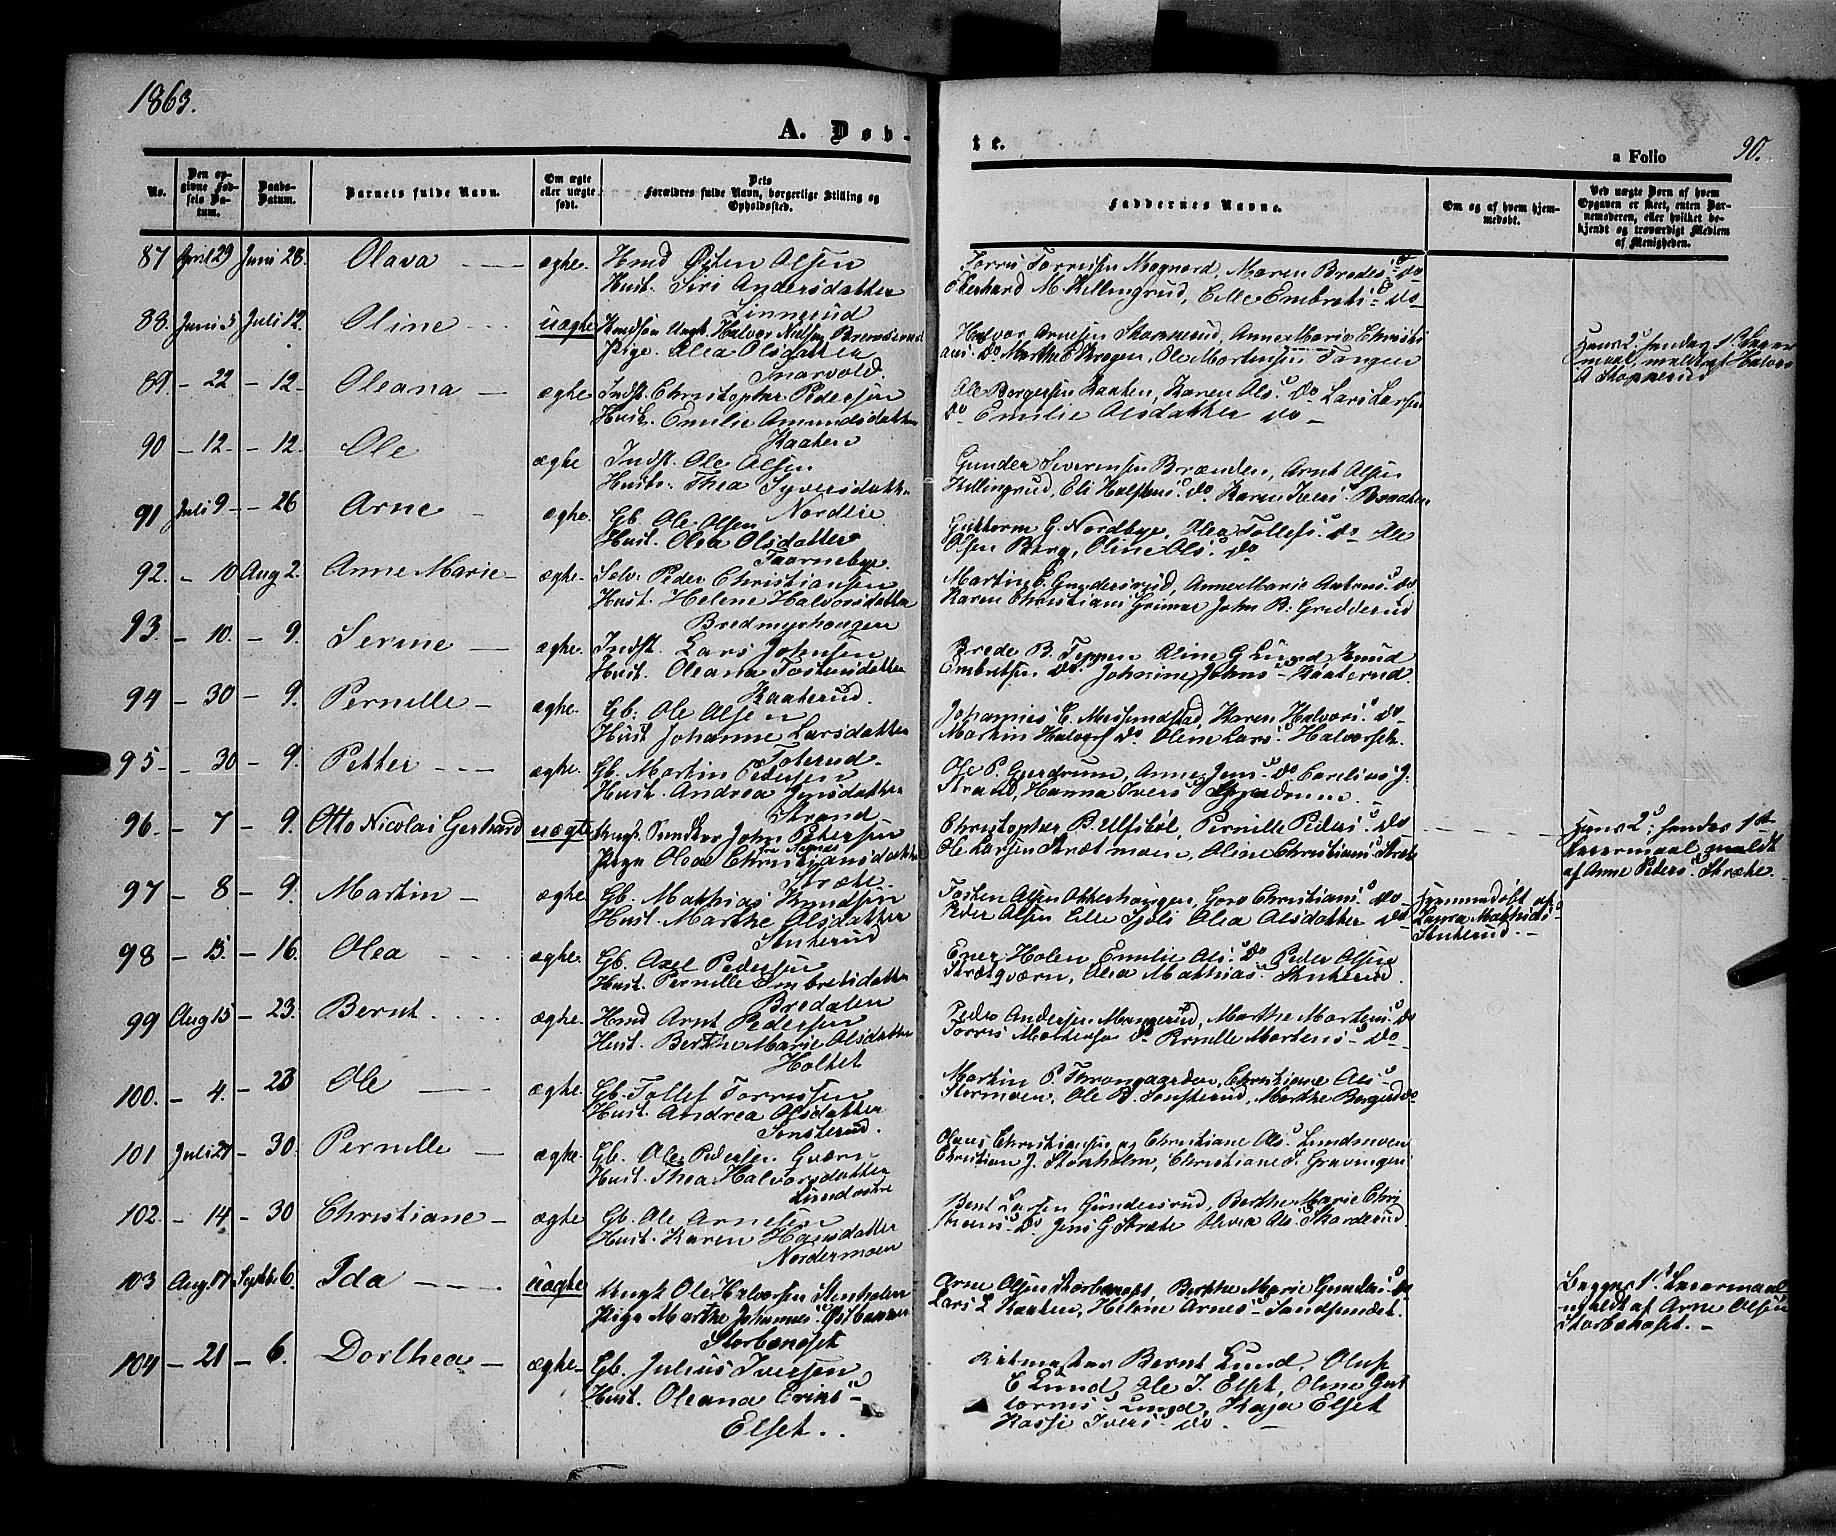 1863.
A. Døb-
te.
a Folio
90.
No.
Den op-
givne Fød-
sels Da-
tum.
Daabs-
Datum.
Barnets fulde Navn.
Om ægte
eller uægte
født.
Dets
Forældres fulde Navn, borgerlige Stilling og
Opholdssted.
Faddernes Navne.
Om og af hvem hjem-
medøbt.
Ved uægte Børn af hvem
Opgaven er skeet, enten Bar-
nemoderen, eller hvilket be-
kjendt og troværdigt Medlem
af Menigheden.
87 April 29 Juni 28. Olava - ægte. Hmd Østen Olsen
Hust. Siri Andersdatter
Linnerud
Torris Torrisen Mognord, Maren Bredes: do
Eberhard M. Killingrud, Eille Embrets: do
88. Juni 5 Juli 12. Oline - uægte Halvor Nielsen
Pige Olea Olsdatter
Snarvold.
Halvor Arnesen Skapperud, Anne Marie Christi
ans: do Marthe E Krogen, Ole Martinsen Tangen
Hans 2: hendes 1ste
A Skapperud
89. - 22 - 12. Oleana - ægte Indst. Christopher Pedersen
Hust. Emilie Amundsdatter
Kaaten
Ole Borgersen Kaaten, Karen Ols: do Lars Larsen
do Emilie Olsdatter do -
90 - 12. - 12. Ole ægte Indst. Ole Olsen
Hustr. Thea Syversdatter
Nordlie
Gunder Severensen Brænden, Arnt Olsen
Killingrud, Eli Halstens: do Karen Ivers: Braaten
91 Juli 9 - - 26 Arne - ægte. Gb. Ole Olsen
Hust. Olea Olsdatter
Taarnebye
Guttorm G. Nordbye, Olea Tollefs: do Ole
Olsen Berg, Oline Ols: do
92. - 10 Aug 2. Anne Marie - ægte - Selv. Peder Christiansen
Hust. Helene Halvorsdatter
Bredmyrhaugen
Martin E. Gundersrud, Anne Marie do
Karen Christians Grimer John B. Gredderud
93. - 10. - 9. Serine - ægte. Indst. Lars Johnsen
Hust. Oleana Tostensdatter
Kaaterud.
Brede B. Teppen Oline G Lund, Knud
Embretsen do. Johnine Johns: Kaaterud.
94 - 30 - 9. Pernille - ægte. Gb. Ole Olsen
Hust Johanne Larsdatter
Toterud -
Johannes E. Karen Halvors: do
Martin Halvors do. Oline Lars: Halvorseth.
95 - - 30 - 9. Petter - - - ægte. Gb. Martin Pedersen
Hust. Andrea Jensdatter
Strand
Ole P. Gjerdrum, Anne Jens: do Carelius J.
Strand, Hanna Ivers Gjerdrum.
96. - 7 - 9. Otto Nicolai Gerhard uægte Ungk. John Petersen
Pige Olea Christiansdatter
Stræte.
Christopher B. Ulfsbøl, Pernille Peders: do
Ole Larsen Strætmoen, Oline Christians: Stræte
Hans 2: hendes 1ste
Leiermaal, meldt
af Anne Peters: Stræte.
97 - 8 - 9. Martin - ægte Gb. Mathias Knudsen
Hust Marthe Olsdatter
Stuterud
Tosten Olsen Goro Christians: do
Peder Olsen Eille Olea Olsdatter do
Hjemmedøbt af
Laura Mathias:
Stuterud. -
98 - 15. - 16. Olea - ægte. Gb. Axel Pedersen
Hust. Pernille Embretsdatter
Bredalen
Ener Holen Emilie Ols: do Peder Olsen
Strætqværn, Olea Mathias: Stuterud.
99 Aug 15 - 23. Bernt . . . . ægte. Hmd Arnt Pedersen
Hust. Berthe Marie Olsdatter
Holtet
Peder Andersen Mangerud, Marthe Martens: do
Torris Mortensen do. Pernille Martens - do -
100. - 4. - 23 Ole - ægte. Gb. Tollef Torrissen
Hust. Andrea Olsdatter
Sønsterud.
Martin P. Christiane Ols:
Stormoen, Ole B. Sønsterud, Marthe Borgers: do
101 Juli 27 - 30. Pernille - ægte. Gb. Ole Pedersen Qværn
Hust. Thea Halvorsdatter
Olaus Christiansen og Christiane Ols: Lundmoen
Christian J. Stenholm, Christiane
102. - 14 - 30 Christiane - ægte Gb. Ole Arnesen
Hust. Karen Hansdatter
Nordermoen
Bent Larsen Gundersrud, Berthe Marie Chri
stians: do Jens G Stræte Olivia Ols: Skarderud.
103 Aug. 17 Septbr 6. Ida - uægte Ungk Ole Halvorsen Stenholen
Pige Marthe Johannes:
Storbæneset
Arne Olsen Storbæneset, Berthe Marie Gunders: do
Lars L Kaaten, Helene Arnes: Sandsundet.
Begges 1ste Leiermaal
meldt af Arne Olsen
Storbæneset. -
104 - 21 - 6. Dorthea - ægte - Gb. Julius Iversen
Hust. Oleana Eriks: -
Elset. .
Ritmester Bernt Lund, Oluf
E Lund, Ole I. Elset, Oline Gut
torms: Lund, Kaja Elset
Kasse Ivers: do. -